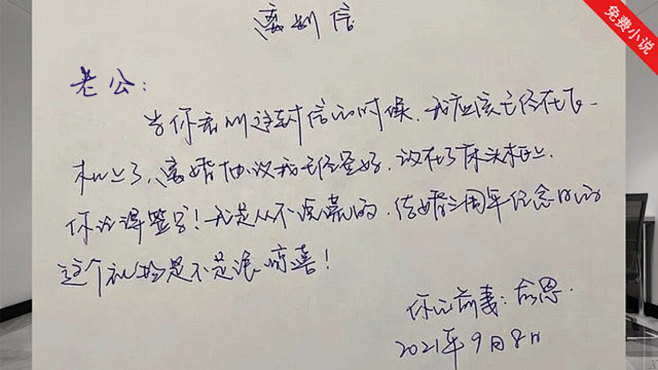 离别信
免费小说
老公:
当你看到这封信的时候,我应该已经在飞
机上了,离婚协议我已经签好,放在了床头柜上
你记得签字!我是从不说谎的,结婚三周年纪念日的
这个礼物是不是很惊喜!
你的前妻:
2021年9月8日